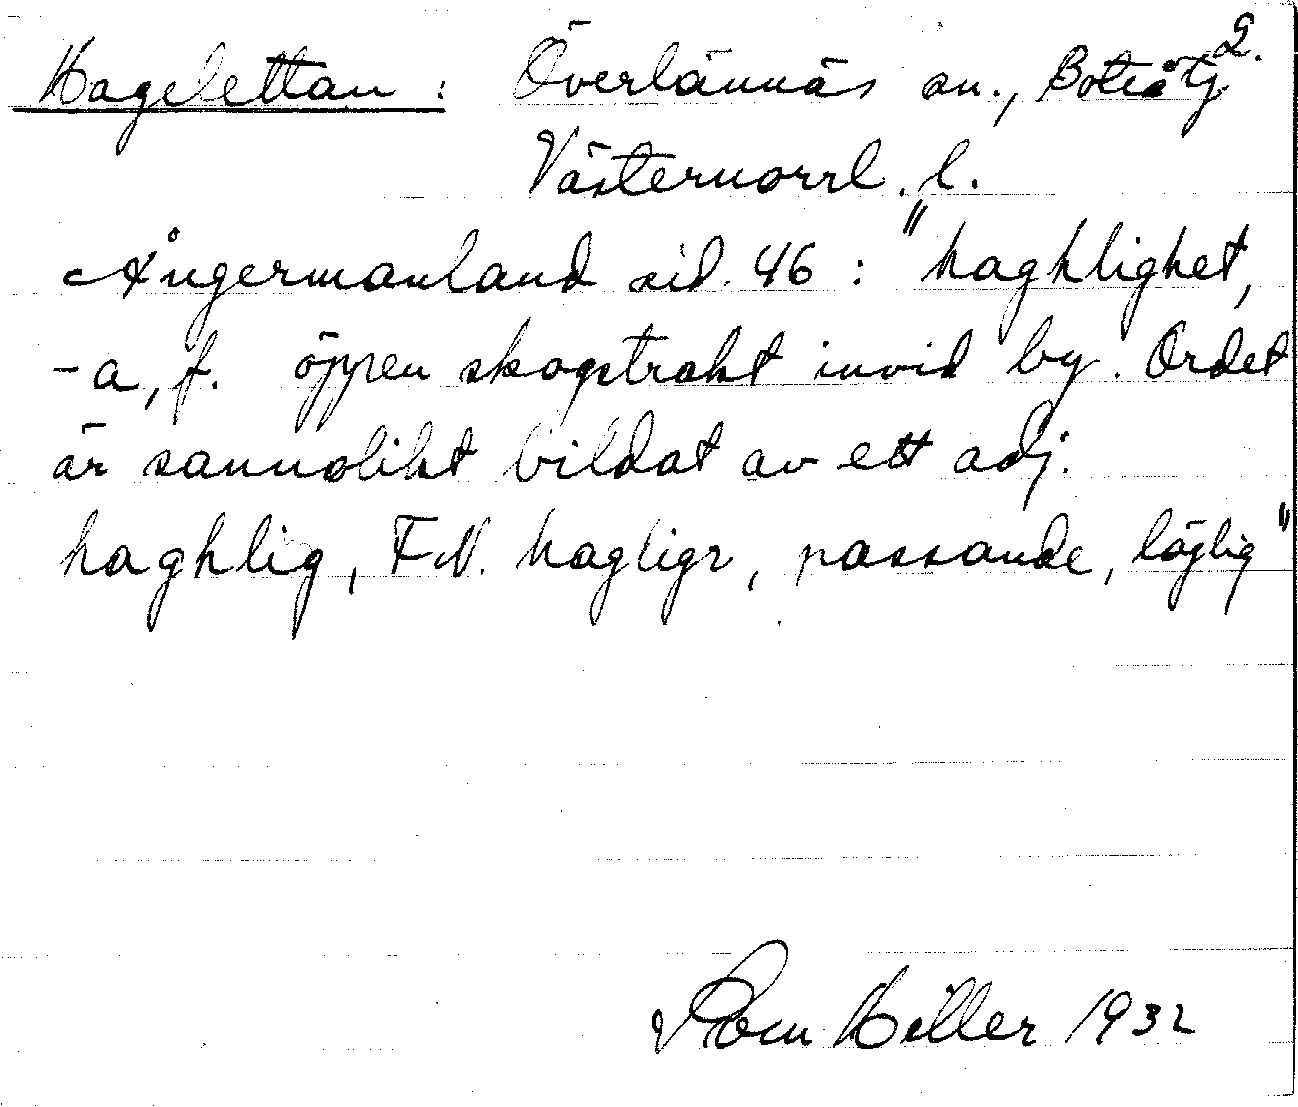 2.
Hagelettan : Överlännäs sn., Boteå tg
Västernorrl. l.
Ångermanland sid. 46 : "haghlighet,
-a, f. öppen skogstrakt invid by. Ordet
är sannolikt bildat av ett adj.
haghlig, F.N. hagligr, passande, läglig"
Hiller 1932